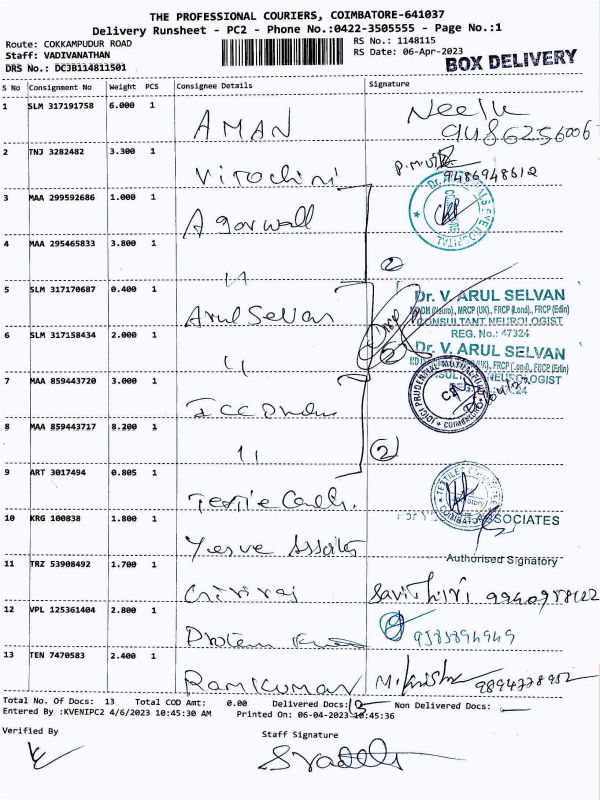 THE PROFESSIONAL COURIERS, COIMBATORE-641037
Delivery Runsheet - PC2 - Phone No.:0422-3505555 - Page No.:1
Route: COKKAMPUDUR ROAD
Staff: VADIVANATHAN
DRS No.: DC3B114811501
RS No.: 1148115
RS Date: 06-Apr-2023
BOX DELIVERY
S No Consignment No Weight PCS Consignee Details Signature
1 SLM 317191758 6.000 1 AMAN Neelu 9486256006
2 TNJ 3282482 3.300 1 Virochini 9486948612
3 MAA 299592686 1.000 1 Agarwall
4 MAA 295465833 3.800 1 11 2
5 SLM 317170687 0.400 1 Arul Selvan
Dr. V. ARUL SELVAN
MD DM (Neuro), MRCP (UK), FRCP (Lond), FRCP (Edin)
CONSULTANT NEUROLOGIST
REG. No.: 47324
6 SLM 317158434 2.000 1 11
Dr. V. ARUL SELVAN
CONSULTANT NEUROLOGIST
7 MAA 859443720 3.000 1
ICICI PRUDENTIAL MUTUAL COIMBATORE
8 MAA 859443717 8.200 1 11 2
9 ART 3017494 0.805 1 Textile
TEXTILE COIMBATORE
10 KRG 100838 1.800 1
ASSOCIATES
Authorised Signatory
11 TRZ 53908492 1.700 1 Giriraj Savithiri
12 VPL 125361404 2.800 1 Protem 9385894949
13 TEN 7470583 2.400 1 Ramkumar 9894278952
Total No. Of Docs: 13 Total COD Amt: 0.00 Delivered Docs: Non Delivered Docs:
Entered By :KVENIPC2 4/6/2023 10:45:30 AM Printed On: 06-04-2023 10:45:36
Verified By Staff Signature